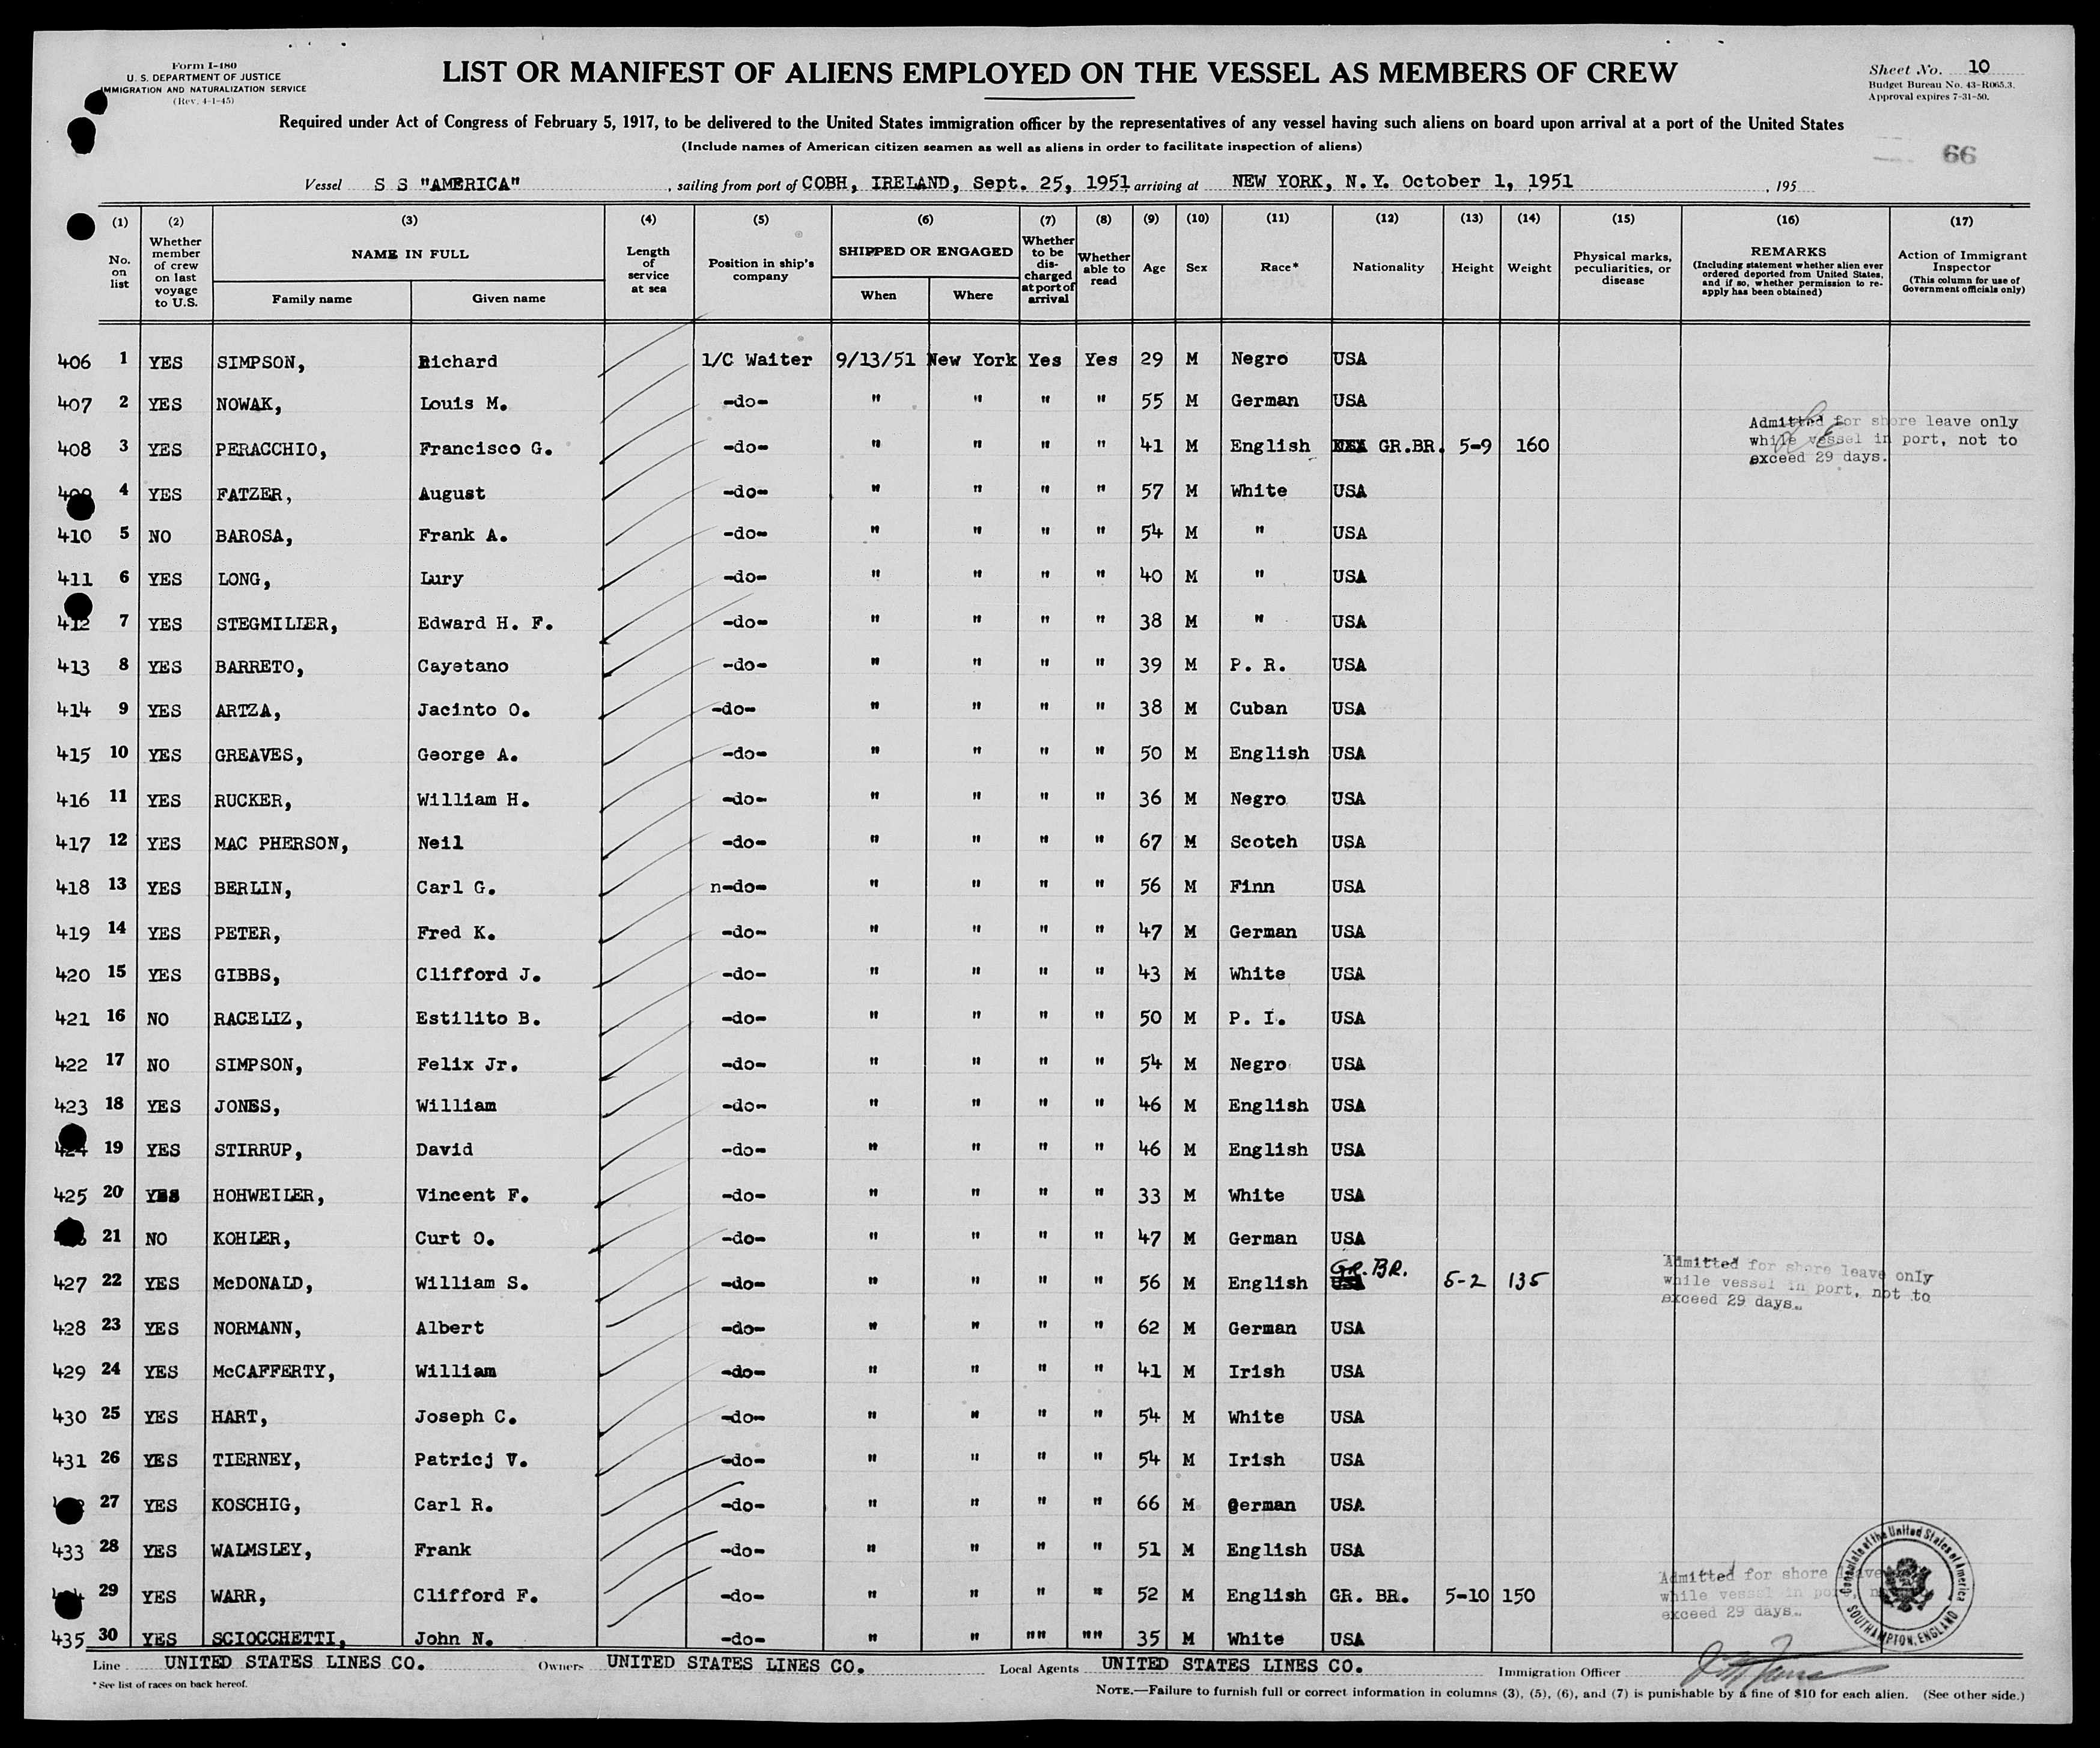 Form I-480
U. S. DEPARTMENT OF JUSTICE
IMMIGRATION AND NATURALIZATION SERVICE
(Rev. 4-1-45)
LIST OR MANIFEST OF ALIENS EMPLOYED ON THE VESSEL AS MEMBERS OF CREW
Sheet No. 10
Budget Bureau No. 43-R065.3.
Approval expires 7-31-50.
Required under Act of Congress of February 5, 1917, to be delivered to the United States immigration officer by the representatives of any vessel having such aliens on board upon arrival at a port of the United States
(Include names of American citizen seamen as well as aliens in order to facilitate inspection of aliens)
66
Vessel S S "AMERICA", sailing from port of COBH, IRELAND, Sept. 25, 1951 arriving at NEW YORK, N.Y. October 1, 1951, 195
(1) (2) (3) (4) (5) (6) (7) (8) (9) (10) (11) (12) (13) (14) (15) (16) (17)
No. on list
Whether member of crew on last voyage to U.S.
NAME IN FULL
Family name
Given name
Length of service at sea
Position in ship's company
SHIPPED OR ENGAGED
When
Where
Whether to be discharged at port of arrival
Whether able to read
Age
Sex
Race*
Nationality
Height
Weight
Physical marks, peculiarities, or disease
REMARKS
(Including statement whether alien ever ordered deported from United States, and if so, whether permission to re-apply has been obtained)
Action of Immigrant Inspector
(This column for use of Government officials only)
406 1 YES SIMPSON, Richard 1/C Waiter 9/13/51 New York Yes Yes 29 M Negro USA
407 2 YES NOWAK, Louis M. -do- " " " " 55 M German USA
408 3 YES PERACCHIO, Francisco G. -do- " " " " 41 M English GR.BR. 5-9 160
Admitted for shore leave only
while vessel in port, not to
exceed 29 days.
409 4 YES FATZER, August -do- " " " " 57 M White USA
410 5 NO BAROSA, Frank A. -do- " " " " 54 M " USA
411 6 YES LONG, Lury -do- " " " " 40 M " USA
412 7 YES STEGMILIER, Edward H. F. -do- " " " " 38 M " USA
413 8 YES BARRETO, Cayetano -do- " " " " 39 M P. R. USA
414 9 YES ARTZA, Jacinto O. -do- " " " " 38 M Cuban USA
415 10 YES GREAVES, George A. -do- " " " " 50 M English USA
416 11 YES RUCKER, William H. -do- " " " " 36 M Negro USA
417 12 YES MAC PHERSON, Neil -do- " " " " 67 M Scotch USA
418 13 YES BERLIN, Carl G. n-do- " " " " 56 M Finn USA
419 14 YES PETER, Fred K. -do- " " " " 47 M German USA
420 15 YES GIBBS, Clifford J. -do- " " " " 43 M White USA
421 16 NO RACELIZ, Estilito B. -do- " " " " 50 M P. I. USA
422 17 NO SIMPSON, Felix Jr. -do- " " " " 54 M Negro USA
423 18 YES JONES, William -do- " " " " 46 M English USA
424 19 YES STIRRUP, David -do- " " " " 46 M English USA
425 20 YES HOHWEILER, Vincent F. -do- " " " " 33 M White USA
21 NO KOHLER, Curt O. -do- " " " " 47 M German USA
427 22 YES McDONALD, William S. -do- " " " " 56 M English USA GR. BR. 5-2 135
Admitted for shore leave only
while vessel in port, not to
exceed 29 days.
428 23 YES NORMANN, Albert -do- " " " " 62 M German USA
429 24 YES McCAFFERTY, William -do- " " " " 41 M Irish USA
430 25 YES HART, Joseph C. -do- " " " " 54 M White USA
431 26 YES TIERNEY, Patricj V. -do- " " " " 54 M Irish USA
27 YES KOSCHIG, Carl R. -do- " " " " 66 M German USA
433 28 YES WALMSLEY, Frank -do- " " " " 51 M English USA
29 YES WARR, Clifford F. -do- " " " " 52 M English GR. BR. 5-10 150
Admitted for shore leave
while vessel in port,
exceed 29 days.
Consulate of the United States of America
SOUTHAMPTON, ENGLAND
435 30 YES SCIOCCHETTI, John N. -do- " " "" "" 35 M White USA
Line UNITED STATES LINES CO. Owners UNITED STATES LINES CO. Local Agents UNITED STATES LINES CO. Immigration Officer
*See list of races on back hereof.
NOTE.—Failure to furnish full or correct information in columns (3), (5), (6), and (7) is punishable by a fine of $10 for each alien. (See other side.)